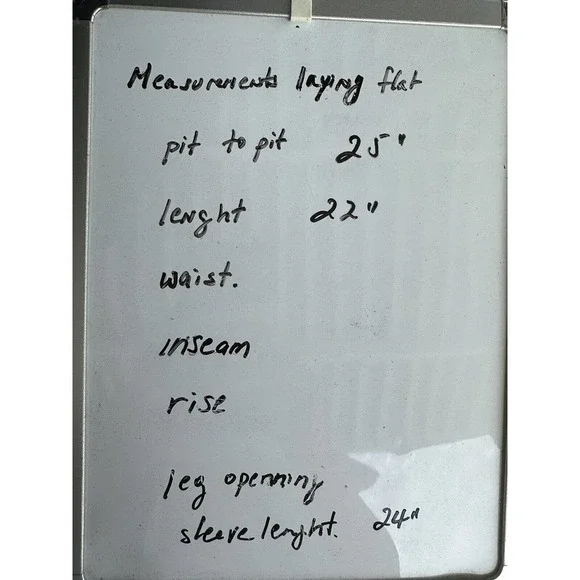 Measurements laying flat
pit to pit 25"
lenght 22"
waist.
inseam
rise
leg openning
sleeve lenght. 24"